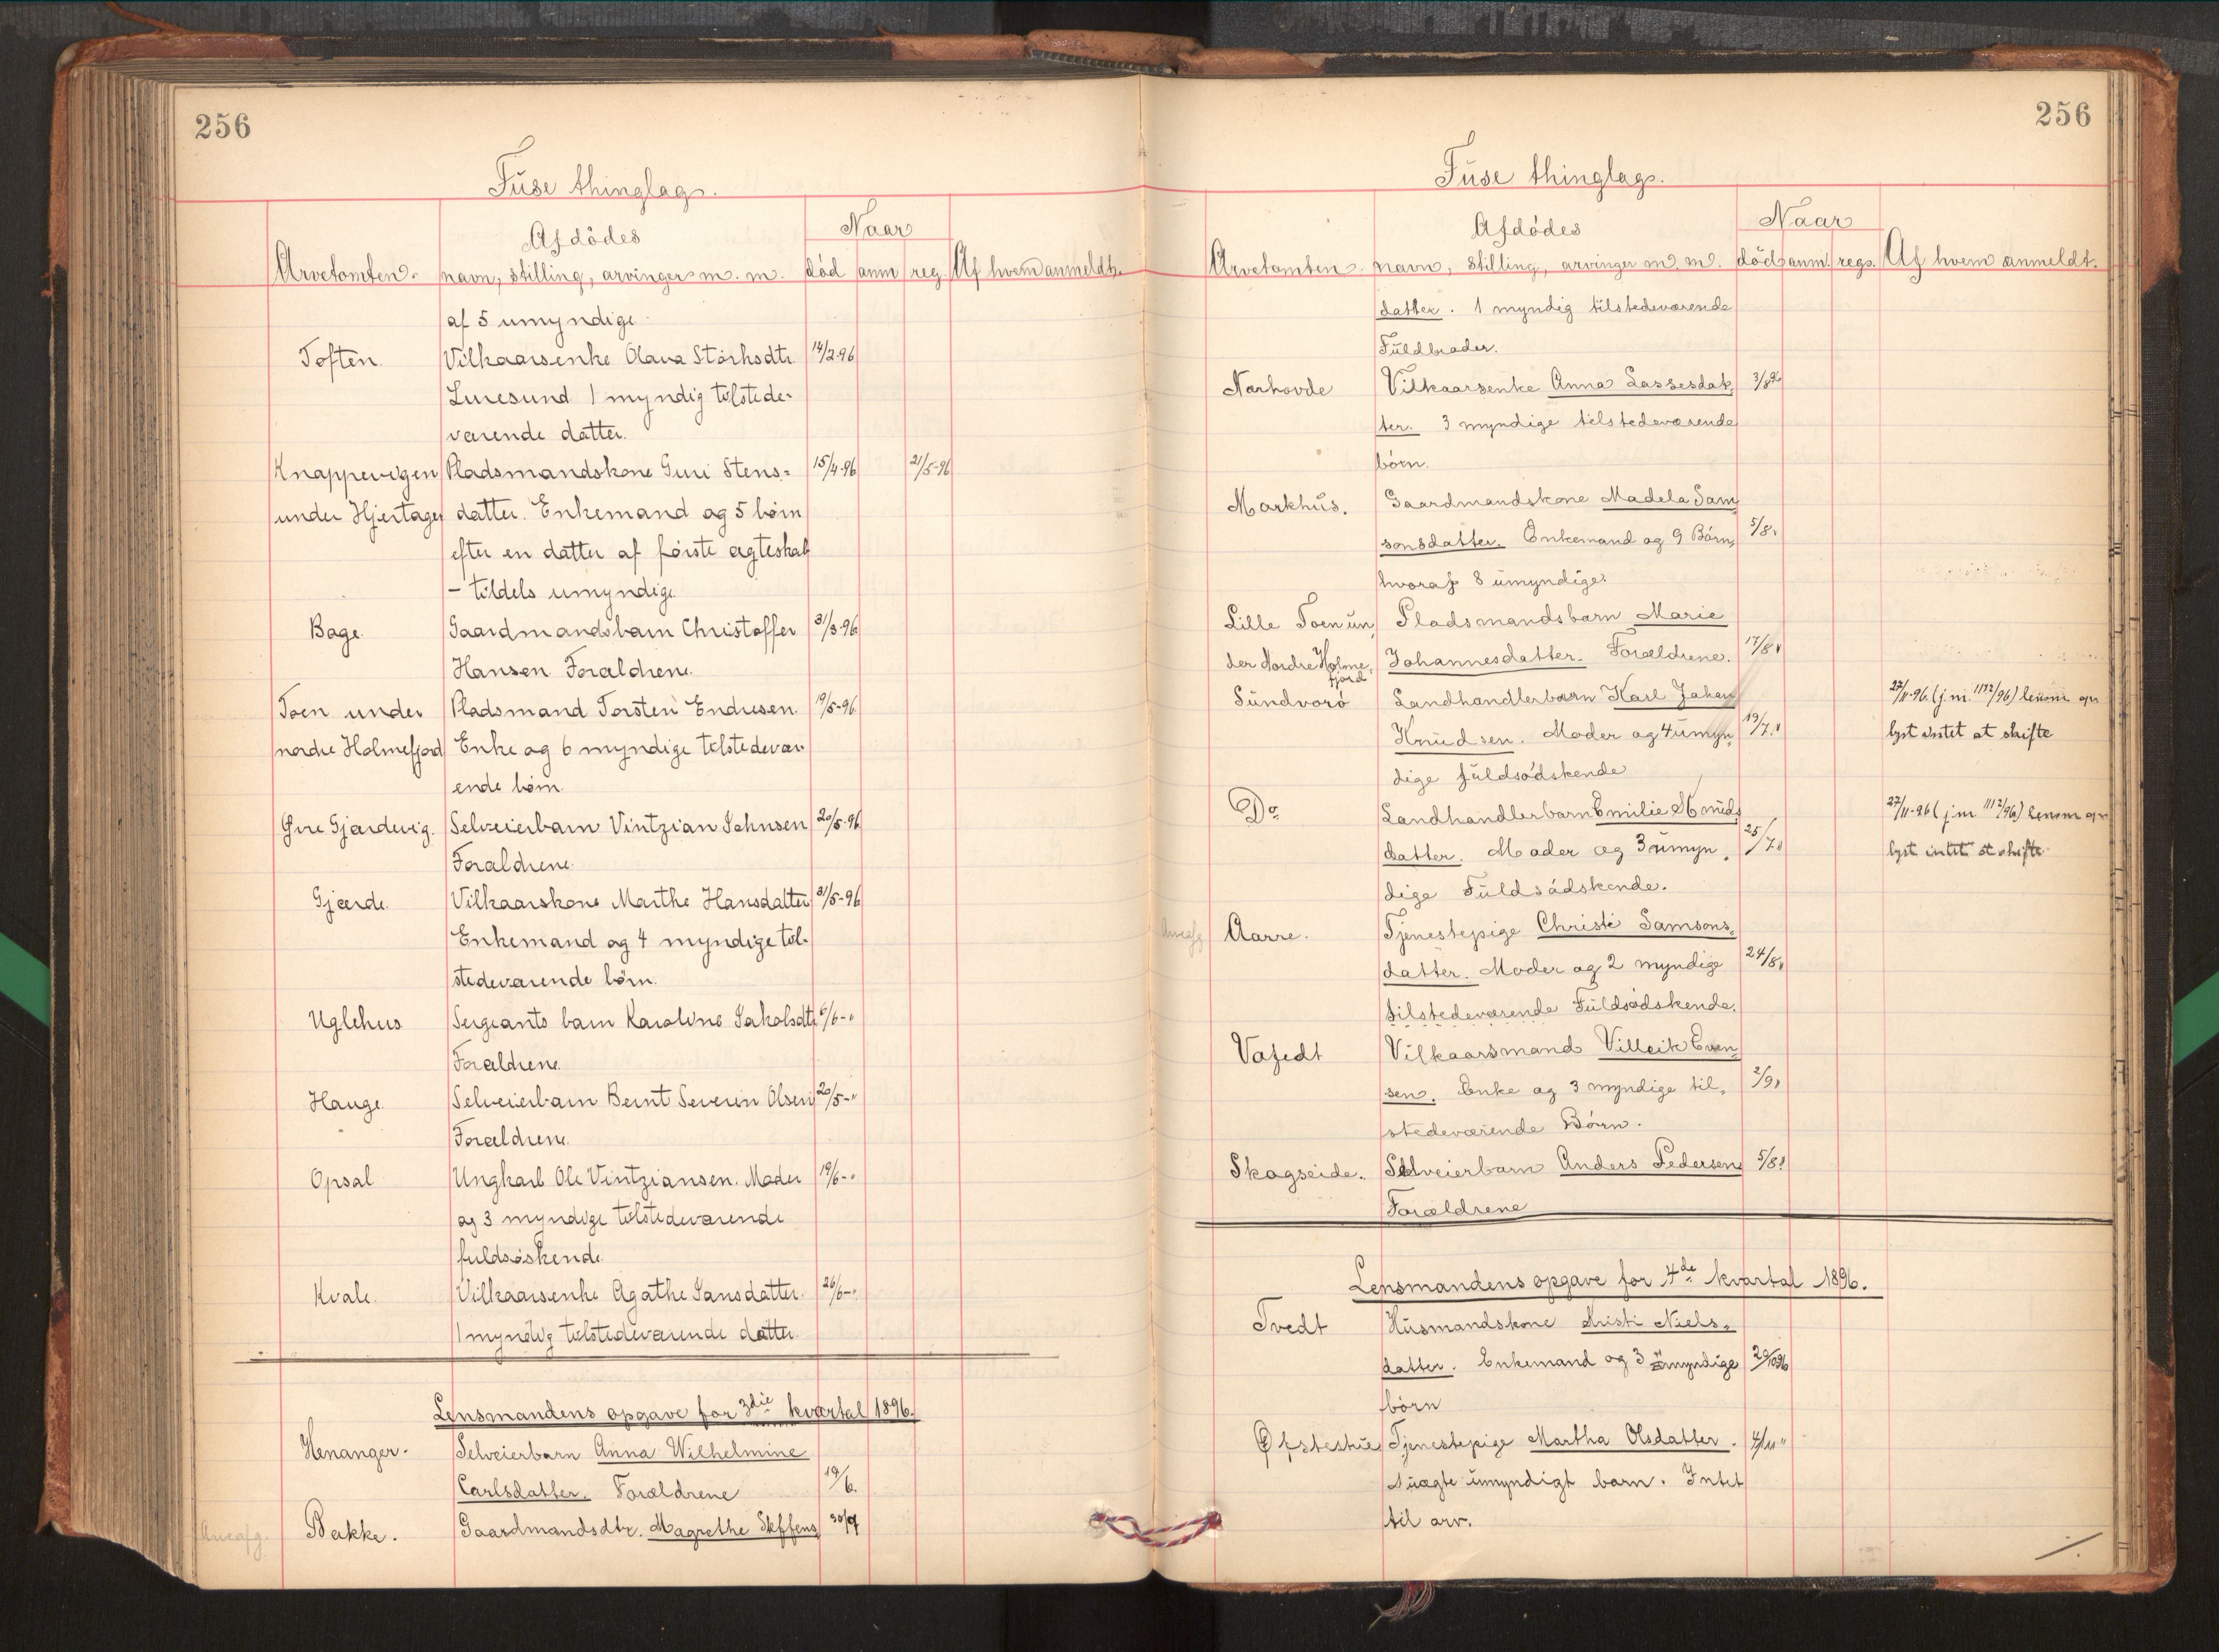 256
Fuse thinglag.
Afdødes
Naar
Arvetomten. navn, stilling, arvinger m. m. død anm reg. Af hvem anmeldt.
af 5 umyndige
Toften. Vilkaarsenke Olava Størksdtr. 14/2-96
Lunesund 1 myndig tilstede-
værende datter.
Knappevigen Pladsmandskone Guri Stens- 15/4-96 21/5-96
under Hjertager datter. Enkemand og 5 børn
efter en datter af første ægteskab
- tildels umyndige
Bage. Gaardmandsbarn Christoffer 31/3-96
Hansen Forældrene.
Toen under Pladsmand Torsten Endresen. 19/5-96
nordre Holmefjord Enke og 6 myndige tilstedevær-
ende børn.
Øvre Gjærdevig. Selveierbarn Vintzian Johnsen 20/5-96
Forældrene.
Gjærde. Vilkaarskone Marthe Hansdatter 31/5-96
Enkemand og 4 myndige til-
stedeværende børn.
Uglehus Sergeants barn Karoline Jakobsdtr 6/6-"
Forældrene.
Hauge. Selveierbarn Bernt Severin Olsen 20/5-"
Forældrene.
Opsal Ungkarl Ole Vintziansen. Moder 19/6-"
og 3 myndige tilstedeværende
fuldsøskende.
Kvale. Vilkaarsenke Agathe Jansdatter. 26/6-"
1 myndig tilstedeværende datter.
Lensmandens opgave for 3die kvartal 1896.
Henanger. Selveierbarn Anna Wilhelmine
Carlsdatter. Forældrene 19/6.
Arveafg. Bakke. Gaardmandsdtr. Magrethe Steffens 30/7
256
Fuse thinglag.
Afdødes
Naar
Arvetomten. navn, stilling, arvinger m. m. død anm. reg. Af hvem anmeldt.
datter. 1 myndig tilstedeværende
Fuldbroder.
Norhovde Vilkaarsenke Anna Lassesdat- 3/8 96
ter. 3 myndige tilstedeværende
børn.
Markhus. Gaardmandskone Madela Sam
sonsdatter. Enkemand og 9 Børn, 5/8 "
hvoraf 8 umyndige.
Lille Toen un- Pladsmandsbarn Marie
der Nordre Holme- Johannesdatter. Forældrene. 17/8 "
fjord
Sundvoró Landhandlerbarn Karl Johan 27/11-96. (j.nr. 1112/96) lensm. op-
Knudsen. Moder og 4 umyn- 19/7 " lyst intet at skifte
dige fuldsødskende
Do Landhandlerbarn Emilie Knuds 27/11-96 (j nr 1112/96) lensm op-
datter. Moder og 3 umyn- 25/7 " lyst intet at skifte
dige Fuldsødskende.
Arveafg Aarre. Tjenestepige Christi Samsons-
datter. Moder og 2 myndige 24/8 "
tilstedeværende Fuldsødskende.
Vatedt Vilkaarsmand Villeik Even-
sen. Enke og 3 myndige til- 2/9 "
stedeværende Børn.
Skogseide. Selveierbarn Anders Pedersen 5/8 "
Forældrene
Lensmandens opgave for 4de kvartal 1896.
Tvedt Husmandskone Kristi Niels-
datter. Enkemand og 3 umyndige 29/10 96
børn
Øfstestue Tjenestepige Martha Olsdatter. 4/11 "
1 uægte umyndigt barn. Intet
til arv.